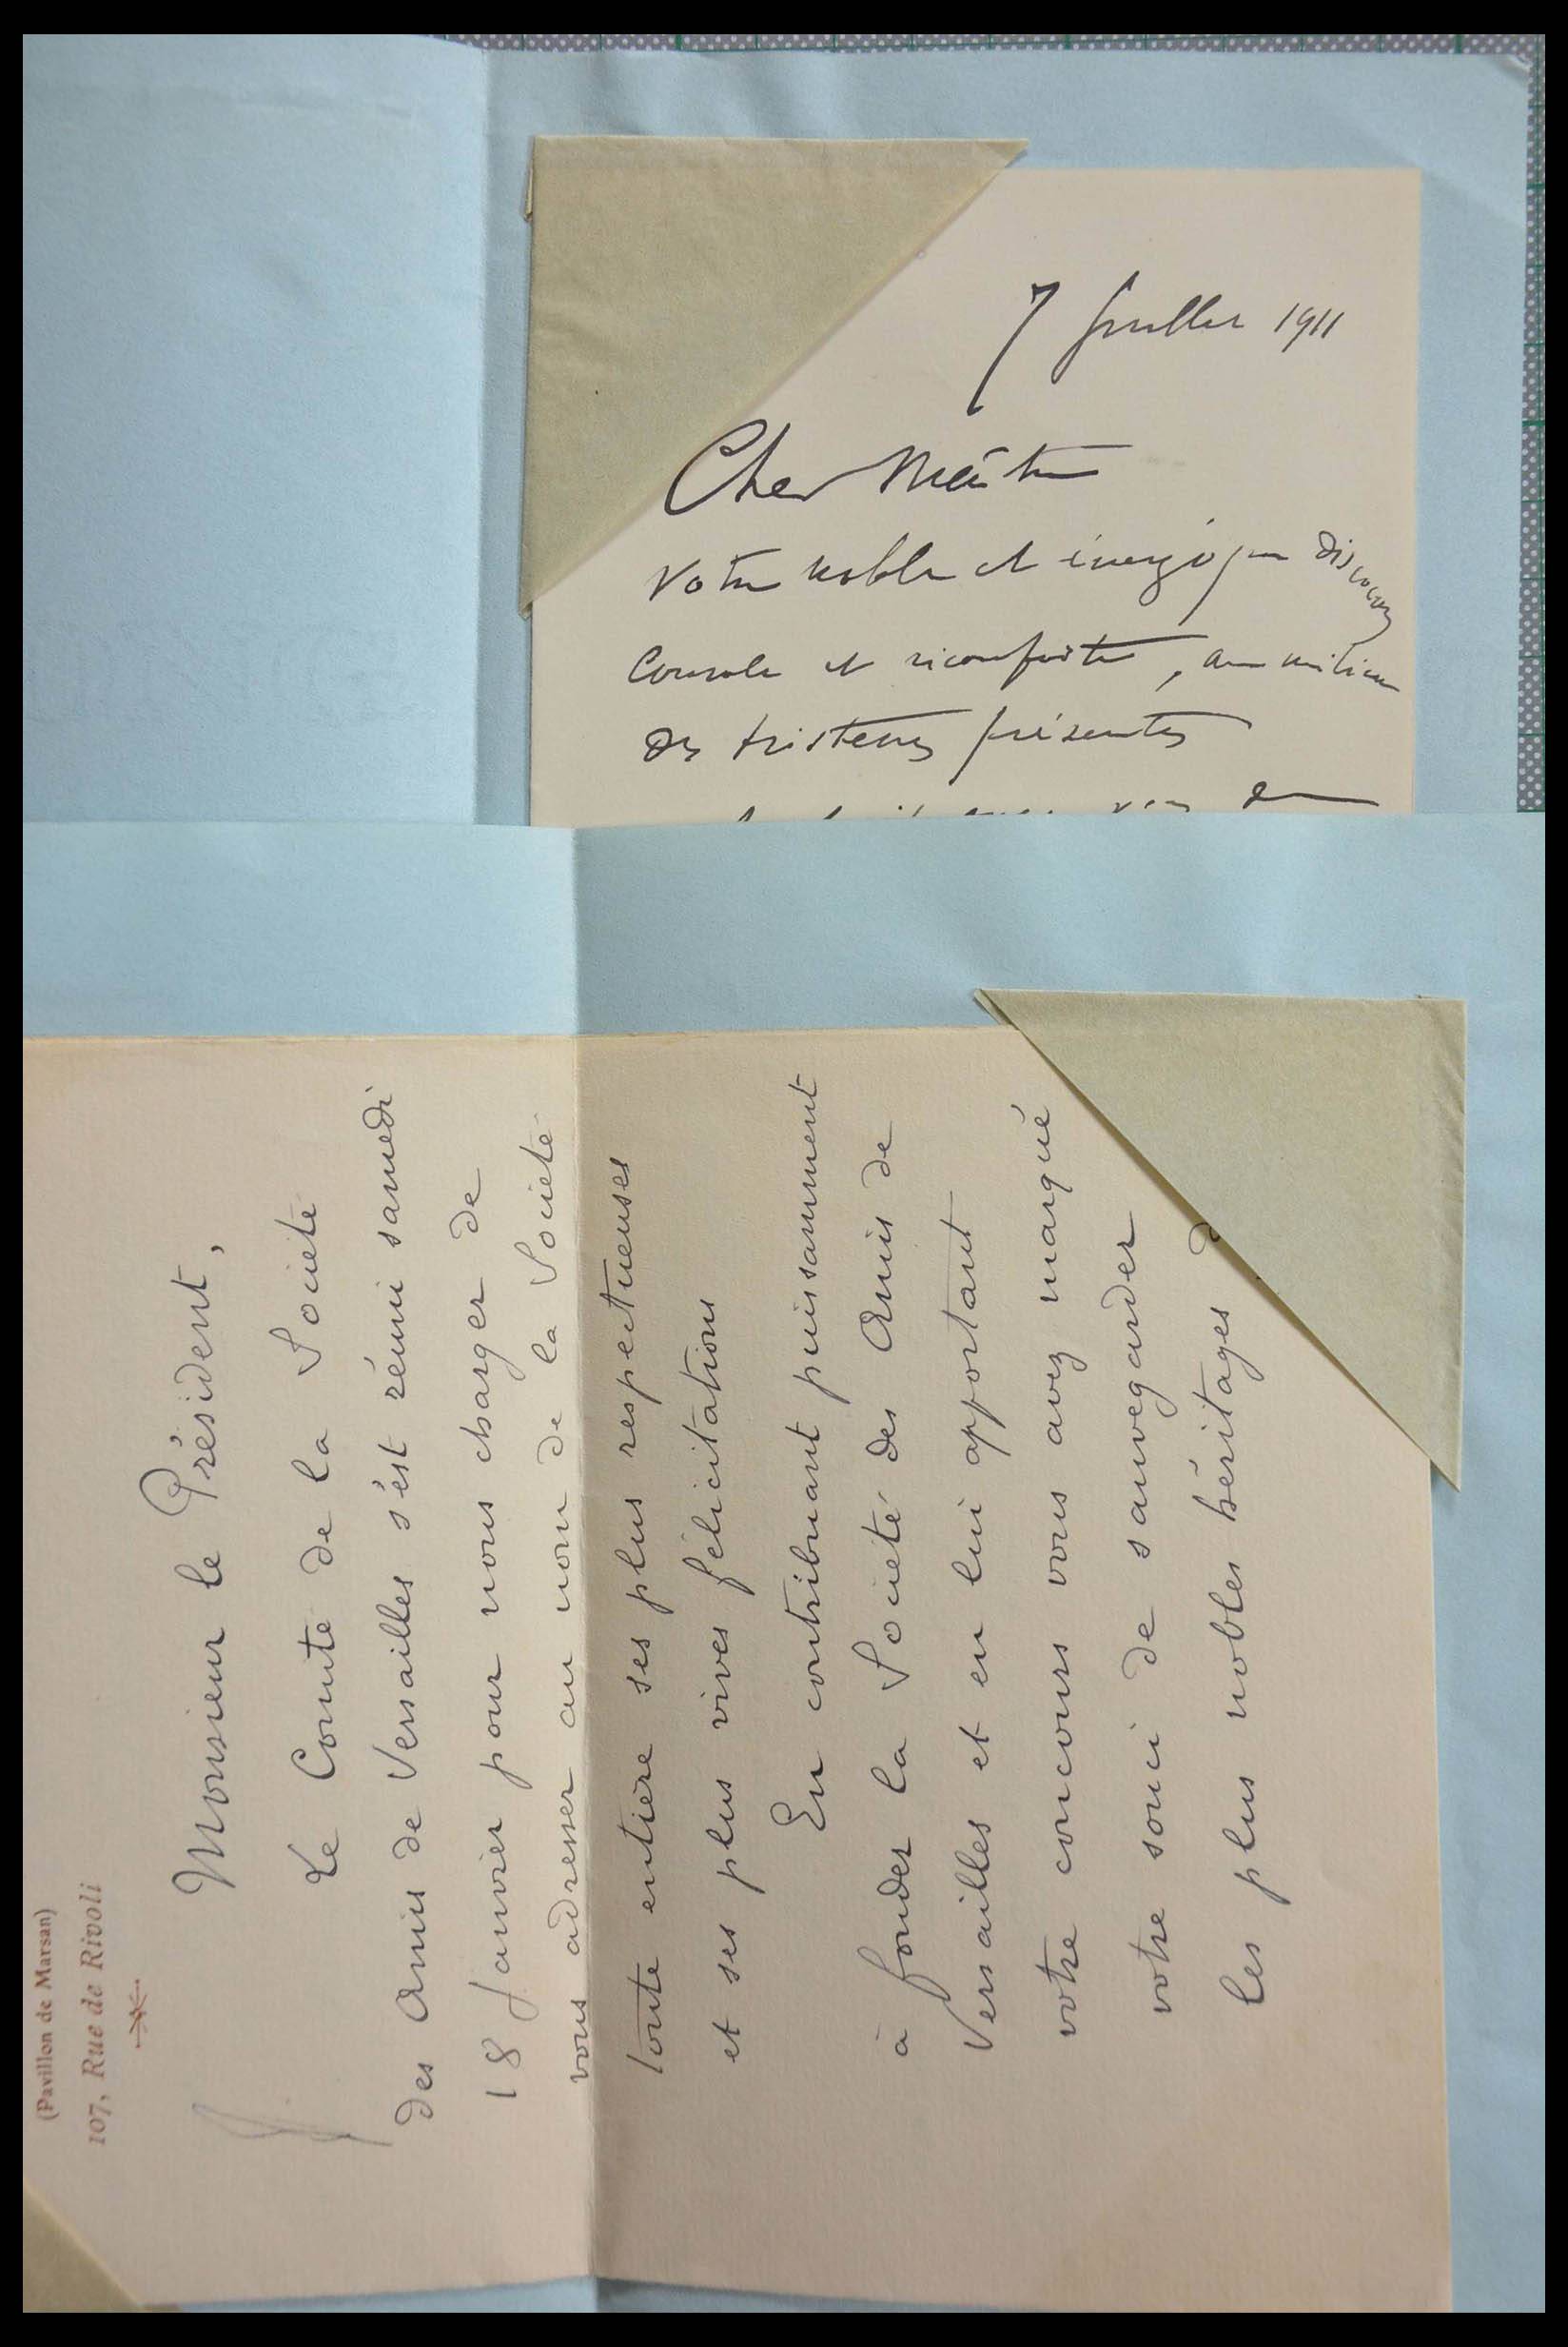 7 Juillet 1911
Cher Maître
Votre noble et énergique discours
Console et réconforte, au milieu
des tristesses présentes
(Pavillon de Marsan)
107, Rue de Rivoli
Monsieur le Président,
Le Comité de la Société
des Amis de Versailles s'est réuni samedi
18 Janvier pour nous charger de
vous adresser au nom de la Société
toute entière ses plus respectueuses
et ses plus vives félicitations
En contribuant puissamment
à fonder la Société des Amis de
Versailles et en lui apportant
votre concours vous avez marqué
votre souci de sauvegarder
les plus nobles héritages d